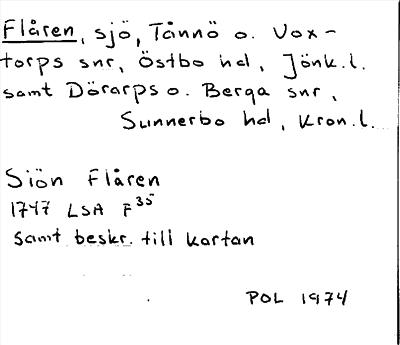 Flåren, sjö, Tånnö o. Vox-
torps snr, Östbo hd, Jönk.l.
samt Dörarps o. Berga snr,
Sunnerbo hd, Kron.l.
Siön Flåren
1747 LSA F35
samt beskr. till kartan
POL 1974